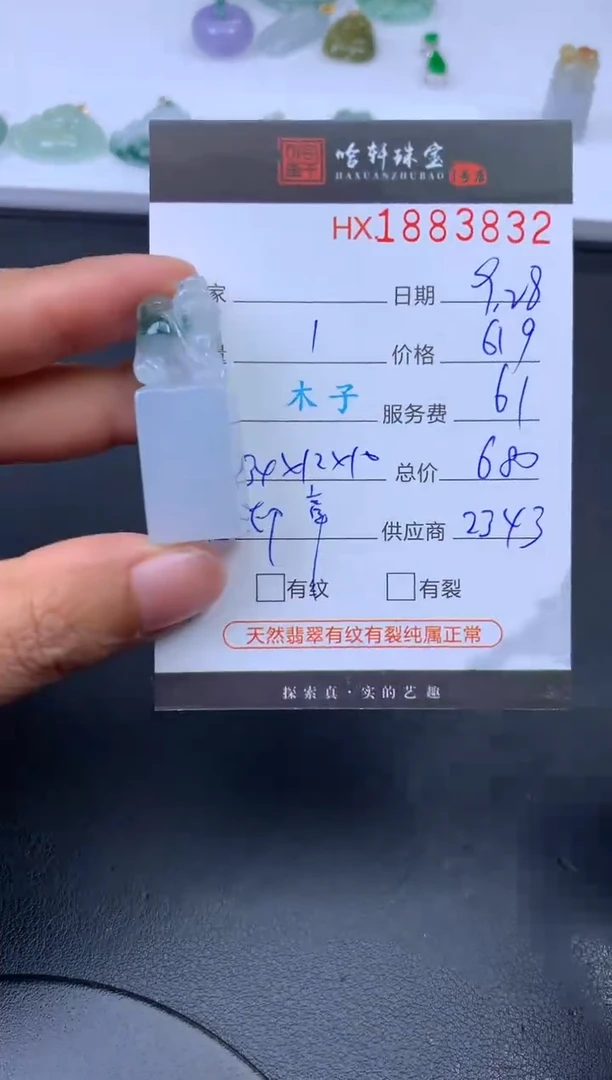 哈轩珠宝
HAXUANZHUBAO 1号店
HX.1883832
家 日期 9.28
量 1 价格 619
木子 服务费 61
34×12×10 总价 680
章 供应商 2343
有纹 有裂
天然翡翠有纹有裂纯属正常
探索真·实的艺趣